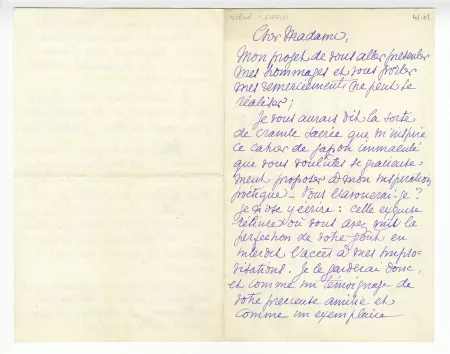 VIELÉ-GRIFFIN
Cher Madame,
Mon projet de vous aller présenter
mes hommages et vous porter
mes remerciements ne peut se
réaliser ;
Je vous aurais dit la sorte
de crainte sacrée que m'inspire
ce cahier de japon immaculé
que vous voulûtes si gracieuse=
ment proposer à mon inspiration
poétique – Vous l'avouerai-je ?
je n'ose y écrire : cette exquise
reliure où vous avez mis la
perfection de votre goût en
interdit l'accès à mes impro-
visations. Je le garderai donc,
et comme un témoignage de
votre précieuse amitié et
comme un exemplaire